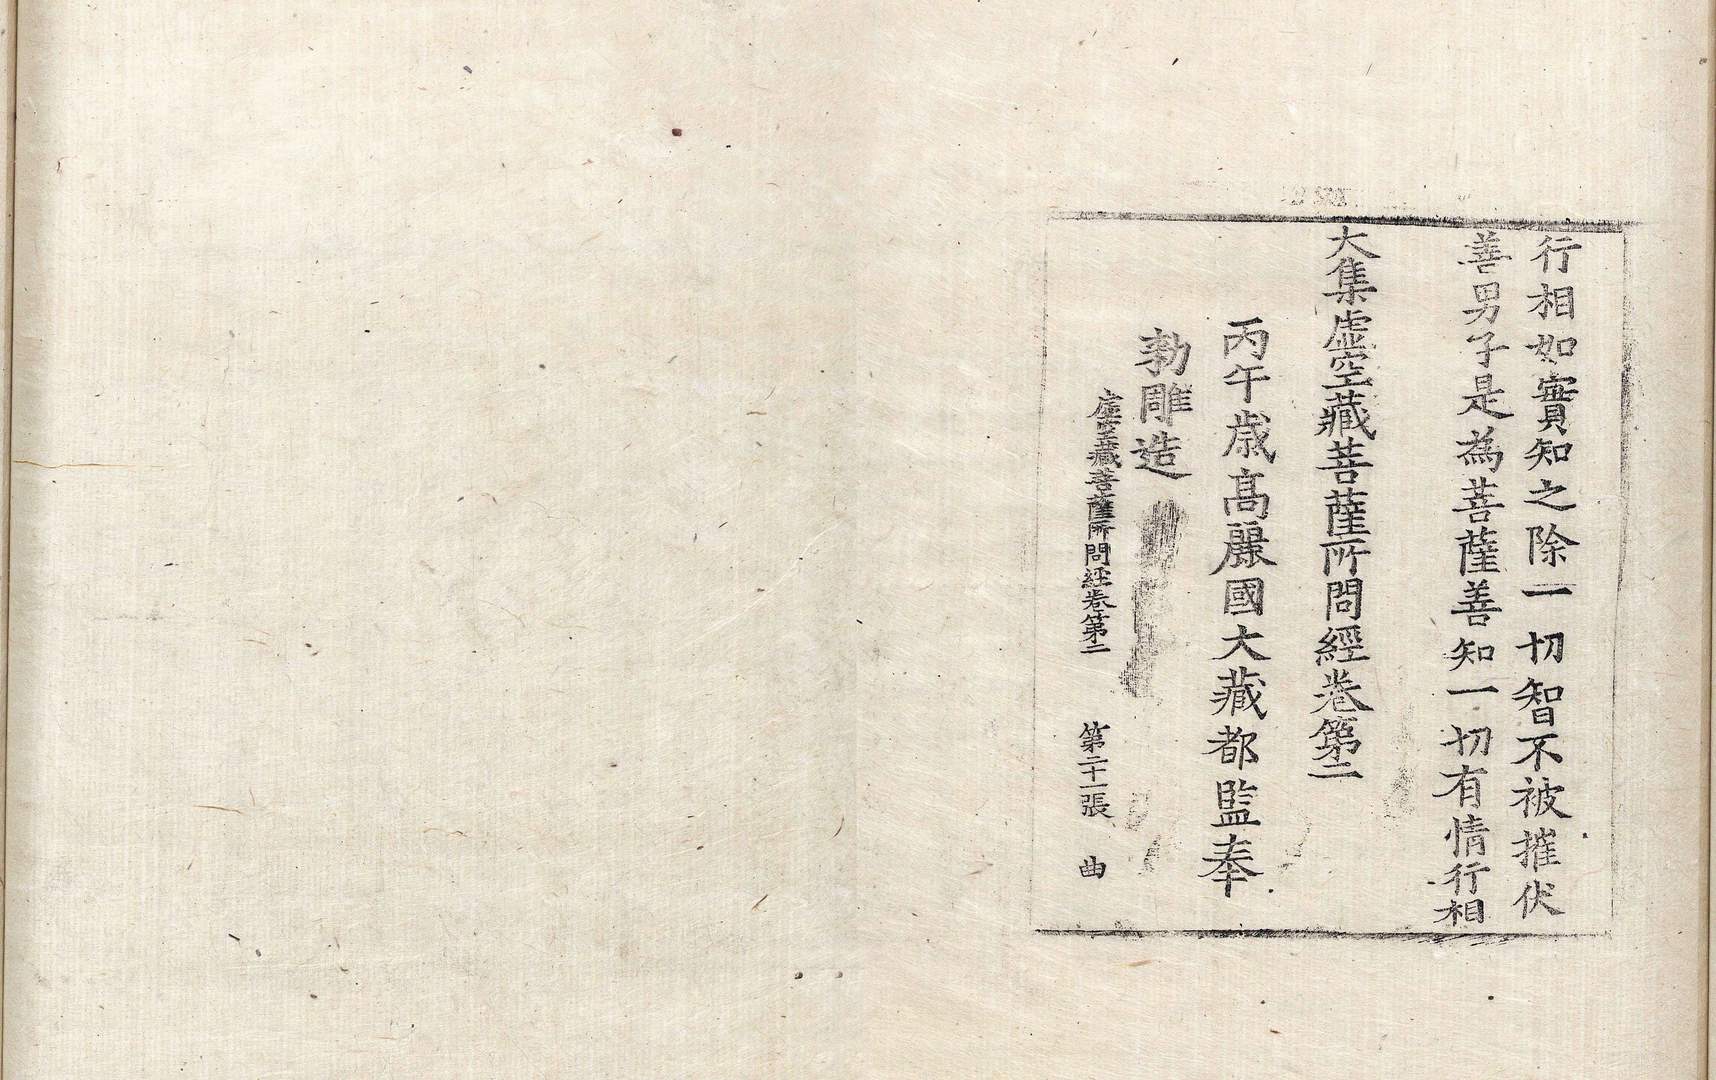 行相如實知之除一切智不被摧伏
善男子是為菩薩善知一切有情行相
大集虛空藏菩薩所問經卷第二
丙午歲高麗國大藏都監奉
勑雕造
虛空藏菩薩所問經卷第二 第二十一張 曲